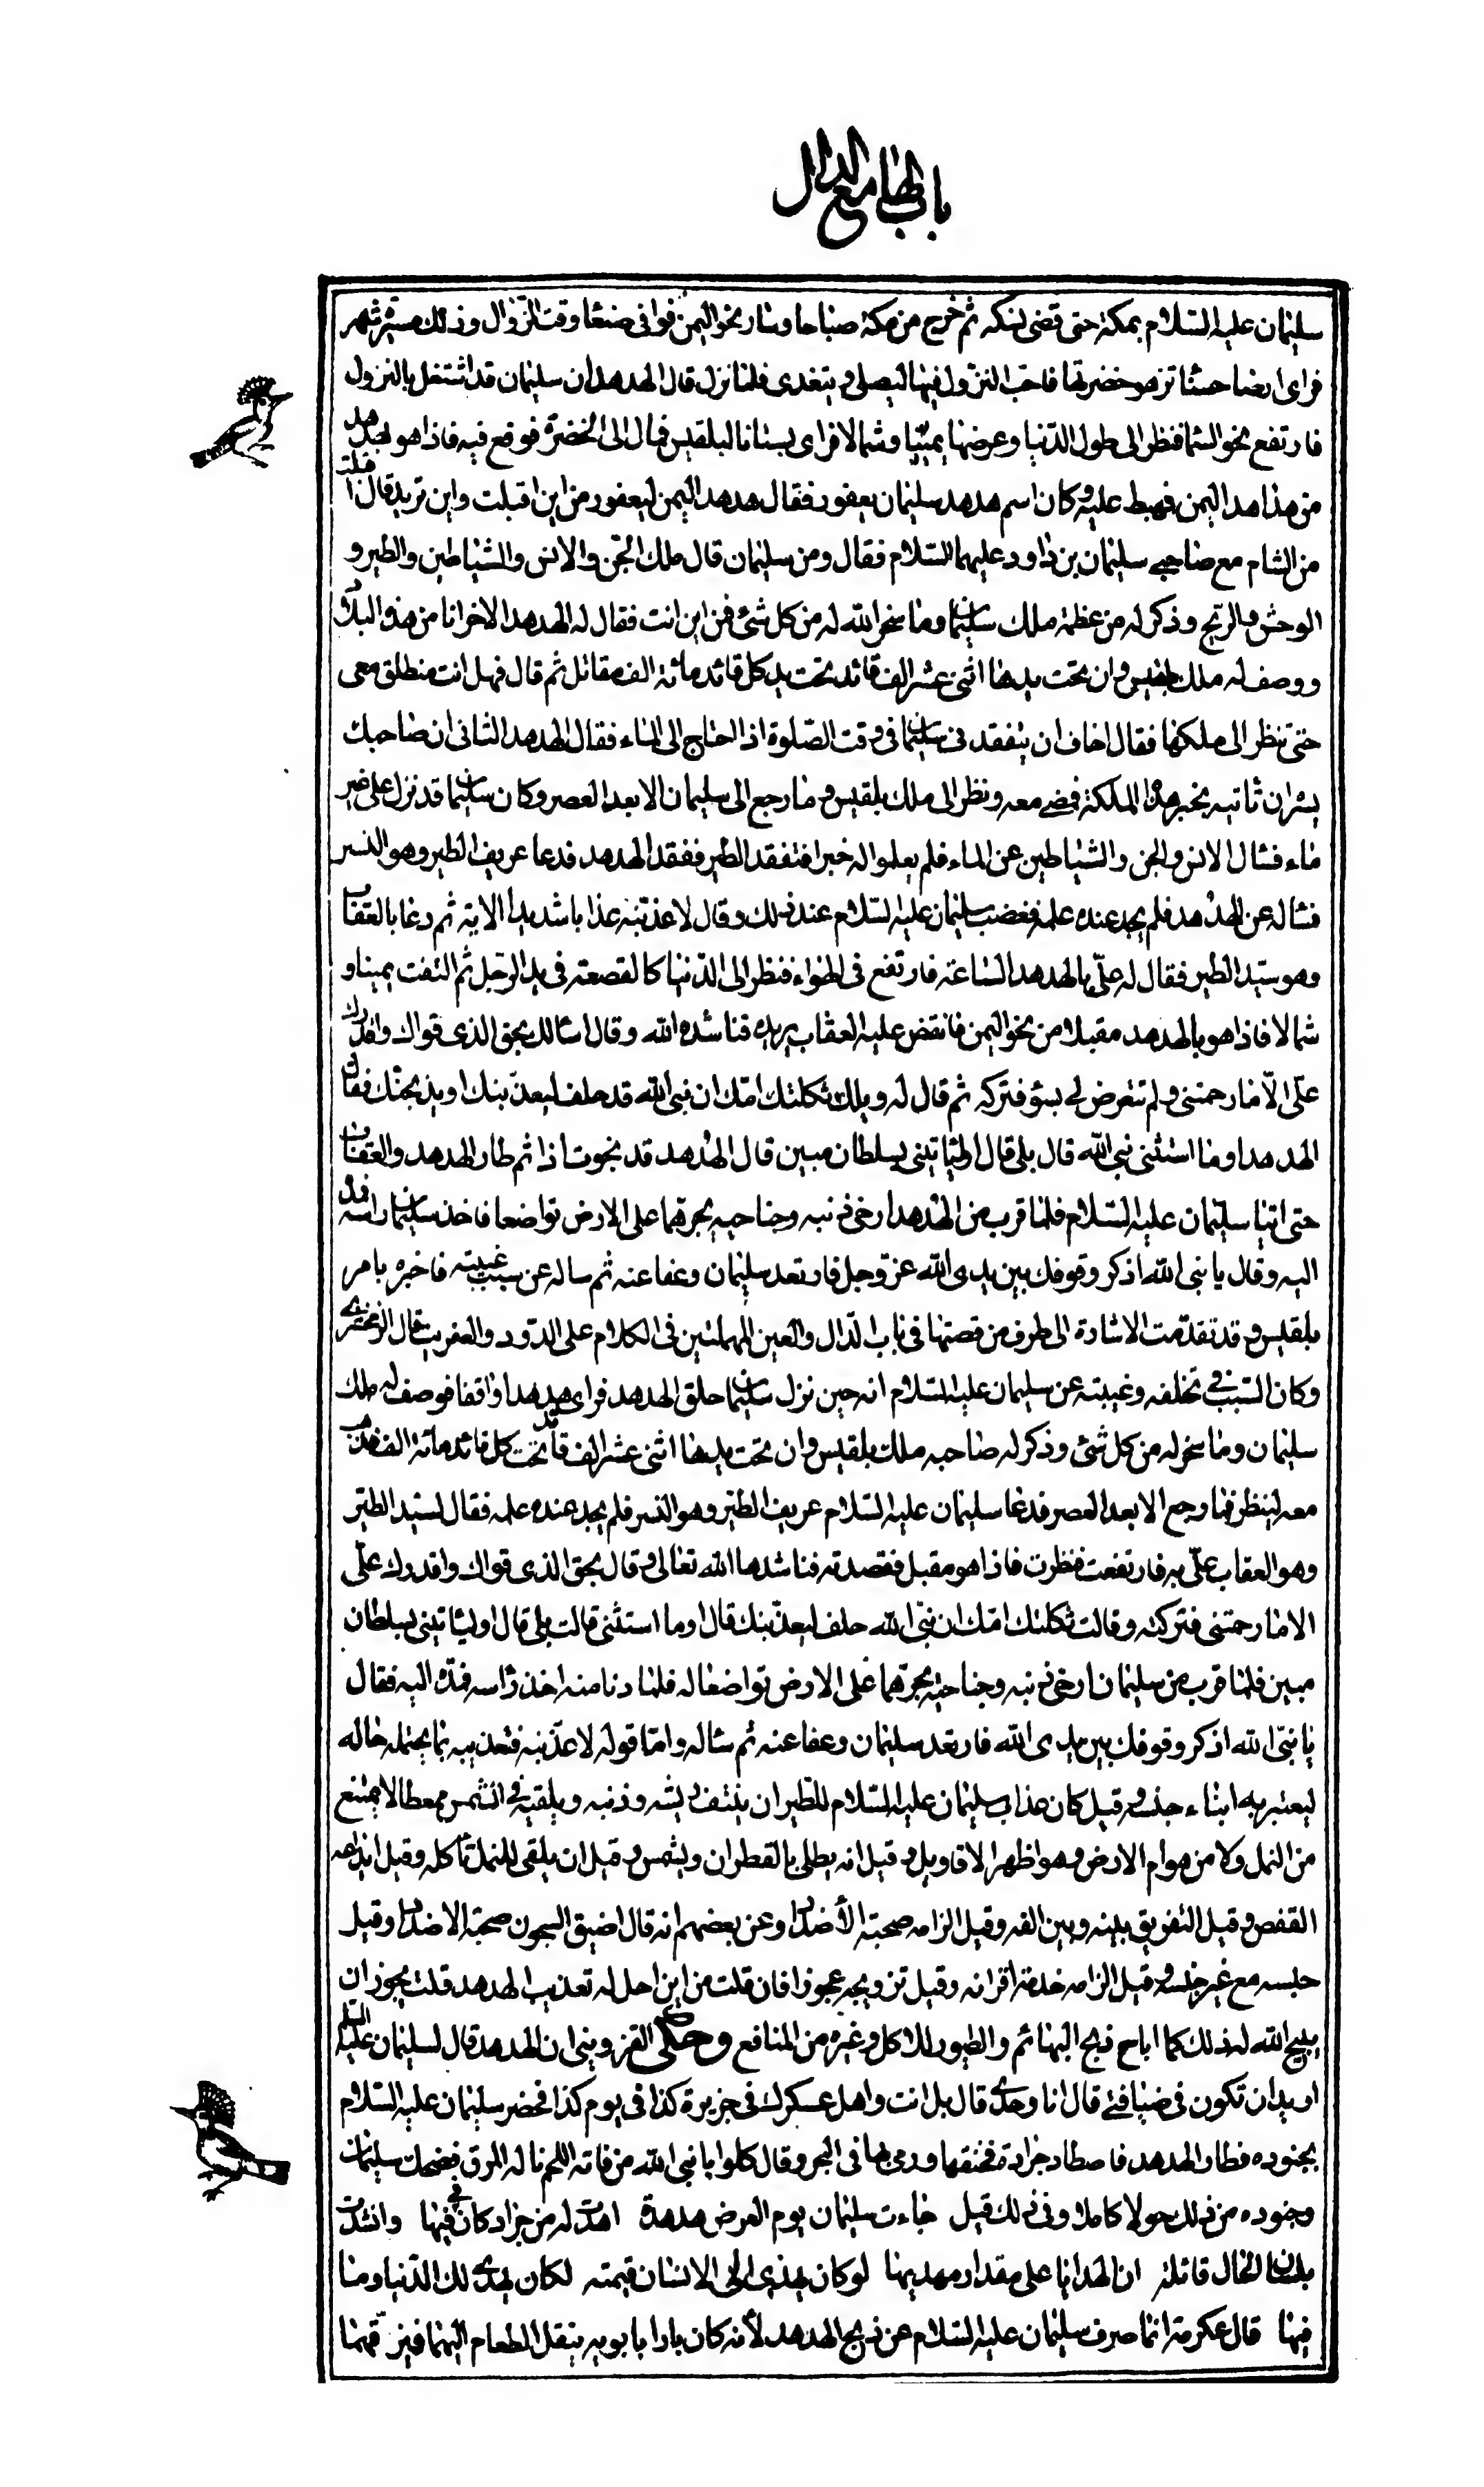 باب الهاء مع الدال
سليمان عليه السلام بمكة حتى قضى نسكه ثم خرج من مكة صباحا وسار نحو اليمن فوافى صنعا وقت الزوال وذلك مسيرة شهر
فراى ارضا حسنا تزهو خضرتها فاحب النزول فيها ليصلى و يتغدى فلما نزل قال الهدهد ان سليمان قد اشتغل بالنزول
فارتفع نحو السما فنظر الى طول الدنيا وعرضها يمينا وشمالا فراى بستانا لبلقيس فمال الى الخضرة فوقع فيه فاذا هو بهدهد
من هداهد اليمن فهبط عليه وكان اسم هدهد سليمان يعفور فقال هدهد اليمن ليعفور من اين اقبلت واين تريد قال اقبلت
من الشام مع صاحبى سليمان بن داود عليهما السلام فقال ومن سليمان قال ملك الجن والانس والشياطين والطير و
الوحش والريح وذكر له من عظمة ملك سليمان وما سخر الله له من كل شئ فمن اين انت فقال له الهدهد الاخر انا من هذه البلاد
ووصف له ملك بلقيس وان تحت يدها اثنى عشر الف قائد تحت يد كل قائد مائة الف مقاتل ثم قال فهل انت منطلق معى
حتى تنظر الى ملكها فقال اخاف ان يتفقد نى سليمان فى وقت الصلوة اذا احتاج الى الماء فقال الهدهد الثانى ان صاحبك
يسر ان تاتيه بخبر هذه الملكة فمضى معه ونظر الى ملك بلقيس وما رجع الى سليمان الا بعد العصر وكان سليمان قد نزل على غير
ماء فسال الانس والجن والشياطين عن الماء فلم يعلموا له خبرا فتفقد الطير ففقد الهدهد فدعا عريف الطير وهو النسر
فساله عن الهدهد فلم يجد عنده علمه فغضب سليمان عليه السلام عند ذلك وقال لاعذبنه عذابا شديدا الاية ثم دعا بالعقاب
وهو سيد الطير فقال له علىّ بالهدهد الساعة فارتفع فى الهواء فنظر الى الدنيا كالقصعة فى يد الرجل ثم التفت يمينا و
شمالا فاذا هو بالهدهد مقبلا من نحو اليمن فانقض عليه العقاب يريده فناشده الله وقال اسالك بحق الذى قواك واقدرك
علىّ الا ما رحمتنى ولم تتعرض لى بسؤ فتركه ثم قال له ويلك ثكلتك امك ان نبى الله قد حلف ليعذبنك او يذبحنك فقال
الهدهد او ما استثنى نبى الله قال بلى قال او ليأتينى بسلطان مبين قال الهدهد قد نجوت اذا ثم طار الهدهد والعقاب
حتى اتيا سليمان عليه السلام فلما قرب من الهدهد ارخى ذنبه وجناحيه يجرهما على الارض تواضعا فاخذ سليمان راسه فمده
اليه وقال يا نبى الله اذكر وقوفك بين يدى الله عز وجل فارتعد سليمان وعفا عنه ثم ساله عن سبب غيبته فاخبره بامر
بلقيس وقد تقدمت الاشارة الى طرف من قصتها فى باب الدال والعين المهملتين فى الكلام على الدود والعفريت قال الزمخشرى
وكان السبب فى تخلفه وغيبته عن سليمان عليه السلام انه حين نزل سليمان حلق الهدهد فراى هدهدا واقفا فوصف له ملك
سليمان وما سخر له من كل شئ وذكر له صاحبه ملك بلقيس وان تحت يدها اثنى عشر الف قائد تحت كل قائد مائة الف فذهب
معه لينظر فما رجع الا بعد العصر فدعا سليمان عليه السلام عريف الطير وهو النسر فلم يجد عنده علمه فقال لسيد الطير
وهو العقاب علىّ به فارتفعت فنظرت فاذا هو مقبل فقصدته فناشدها الله تعالى وقال بحق الذى قواك واقدرك علىّ
الا ما رحمتنى فتركته وقالت ثكلتك امك ان نبى الله حلف ليعذبنك قال او ما استثنى قالت بلى قال او ليأتينى بسلطان
مبين فلما قرب من سليمان ارخى ذنبه وجناحيه يجرهما على الارض تواضعا له فلما دنا منه اخذ راسه فمده اليه فقال
يا نبى الله اذكر وقوفك بين يدى الله فارتعد سليمان وعفا عنه ثم ساله واما قوله لاعذبنه فتعذيبه بما يحتمله حاله
ليعتبر به ابناء جنسه وقيل كان عذاب سليمان عليه السلام للطير ان ينتف ريشه وذنبه ويلقيه فى الشمس ممعطا لا يمتنع
من النمل ولا من هوام الارض وهو اظهر الاقاويل وقيل انه يطلى بالقطران ويشمس وقيل ان يلقى للنمل تأكله وقيل ايداعه
القفص وقيل التفريق بينه وبين الفه وقيل الزامه صحبة الأضداد وعن بعضهم انه قال اضيق السجون صحبة الاضداد وقيل
حبسه مع غير جنسه وقيل الزامه خدمة اقرانه وقيل تزويجه عجوزا فان قلت من اين احل له تعذيب الهدهد قلت يجوز ان
يبيح الله له ذلك كما اباح ذبح البهائم والطيور للاكل وغيره من المنافع وحكى القزوينى ان الهدهد قال لسليمان عليه السلم
اريد ان تكون فى ضيافتى قال انا وحدى قال بل انت واهل عسكرك فى جزيرة كذا فى يوم كذا فحضر سليمان عليه السلام
بجنوده فطار الهدهد فاصطاد جرادة فخنقها ورمى بها فى البحر وقال كلوا يا نبى الله من فاته اللحم ناله المرق فضحك سليمان
وجنوده من ذلك حولا كاملا وفى ذلك قيل جاءت سليمان يوم العرض هدهدة اهدت له من جراد كان فى فيها وانشدت
بلسان الحال قائلة ان الهدايا على مقدار مهديها لو كان يهدى الى الانسان قيمته لكان يهدى لك الدنيا وما
فيها قال عكرمة انما صرف سليمان عليه السلام عن ذبح الهدهد لأنه كان بارا بابويه ينقل الطعام اليهما فيزقهما